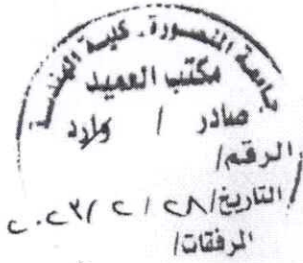 جامعة المنصورة - كلية الهندسة
مكتب العميد
صادر / وارد
الرقم/
التاريخ/ ٢٨ / ٢ / ٢٠٢٣
المرفقات/